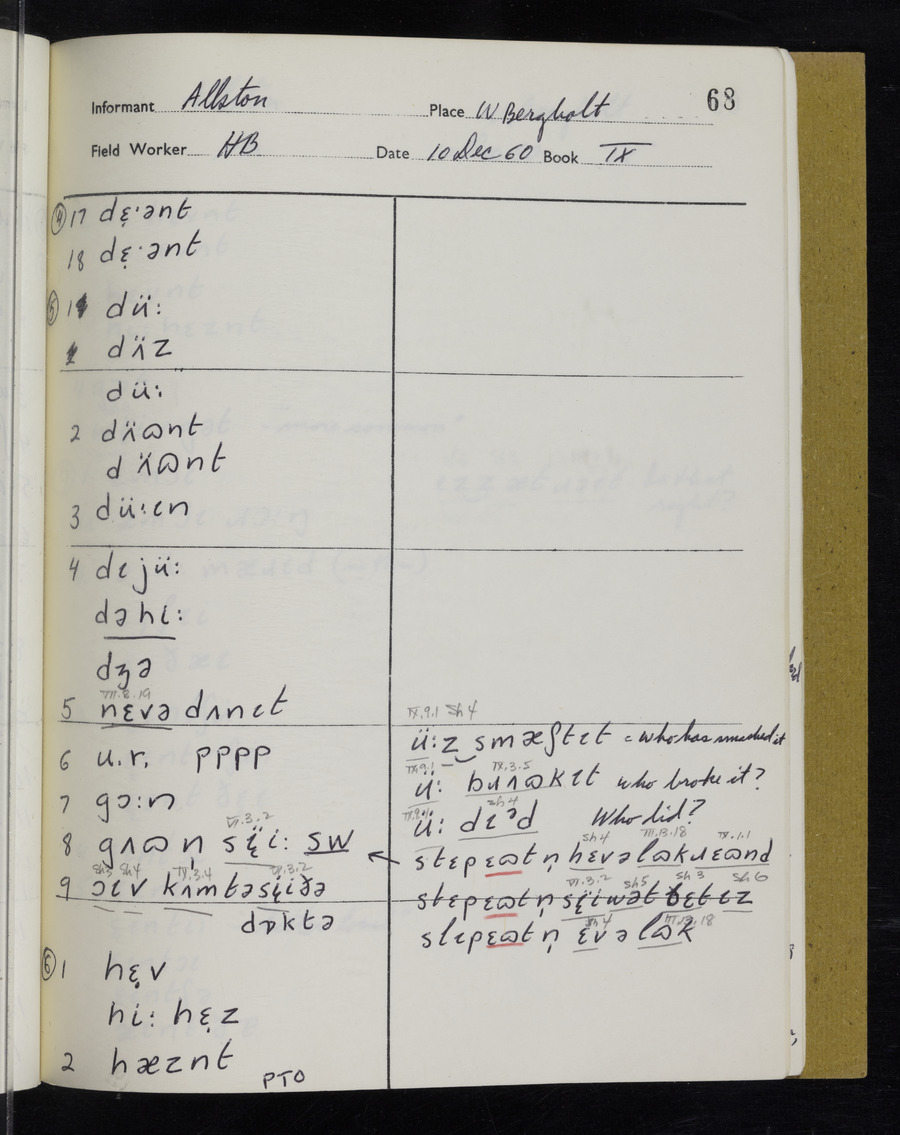 Informant Allston Place W Bergholt 68
Field Worker HB Date 10 Dec 60 Book IX
④ 17 dɛ̣·ənt
18 dɛ̣·ənt
⑤ 1 dü:
dʌ̈z
dü:
2 dʌ̈ɷnt
dʌ̈ɷnt
3 dü:ɩn
4 dɩjü:
dəhi:
dʒə
VII.8.19
5 nɛvə dʌnɩt
6 u.r. pppp
7 gɔ:n
VI.3.2
8 gʌɷn̩ sɛ̣̈i: SW
Sh5 Sh4 IX.3.4 VI.3.2
9 ɔɩv kʌmtəsɛ̣̈iðə
dɒktə
⑥ 1 hɛ̣v
hi: hɛ̣z
2 hæznt
PTO
IX.9.1 Sh4
ü:z smæʃtɩt = who has smashed it
IX.9.1 IX.3.5
ü: bɹʌɷkɩt who broke it?
Sh4
ü: dɩˀd Who did?
Sh4 III.13.18 IX.1.1
stɛpɛɷtn̩ hɛvəlɷkɹɛɷnd
VI.3.2 Sh5 Sh3 Sh6
Sh4 III.13.18
stɛpɛɷtn̩ ɛvəlɷk